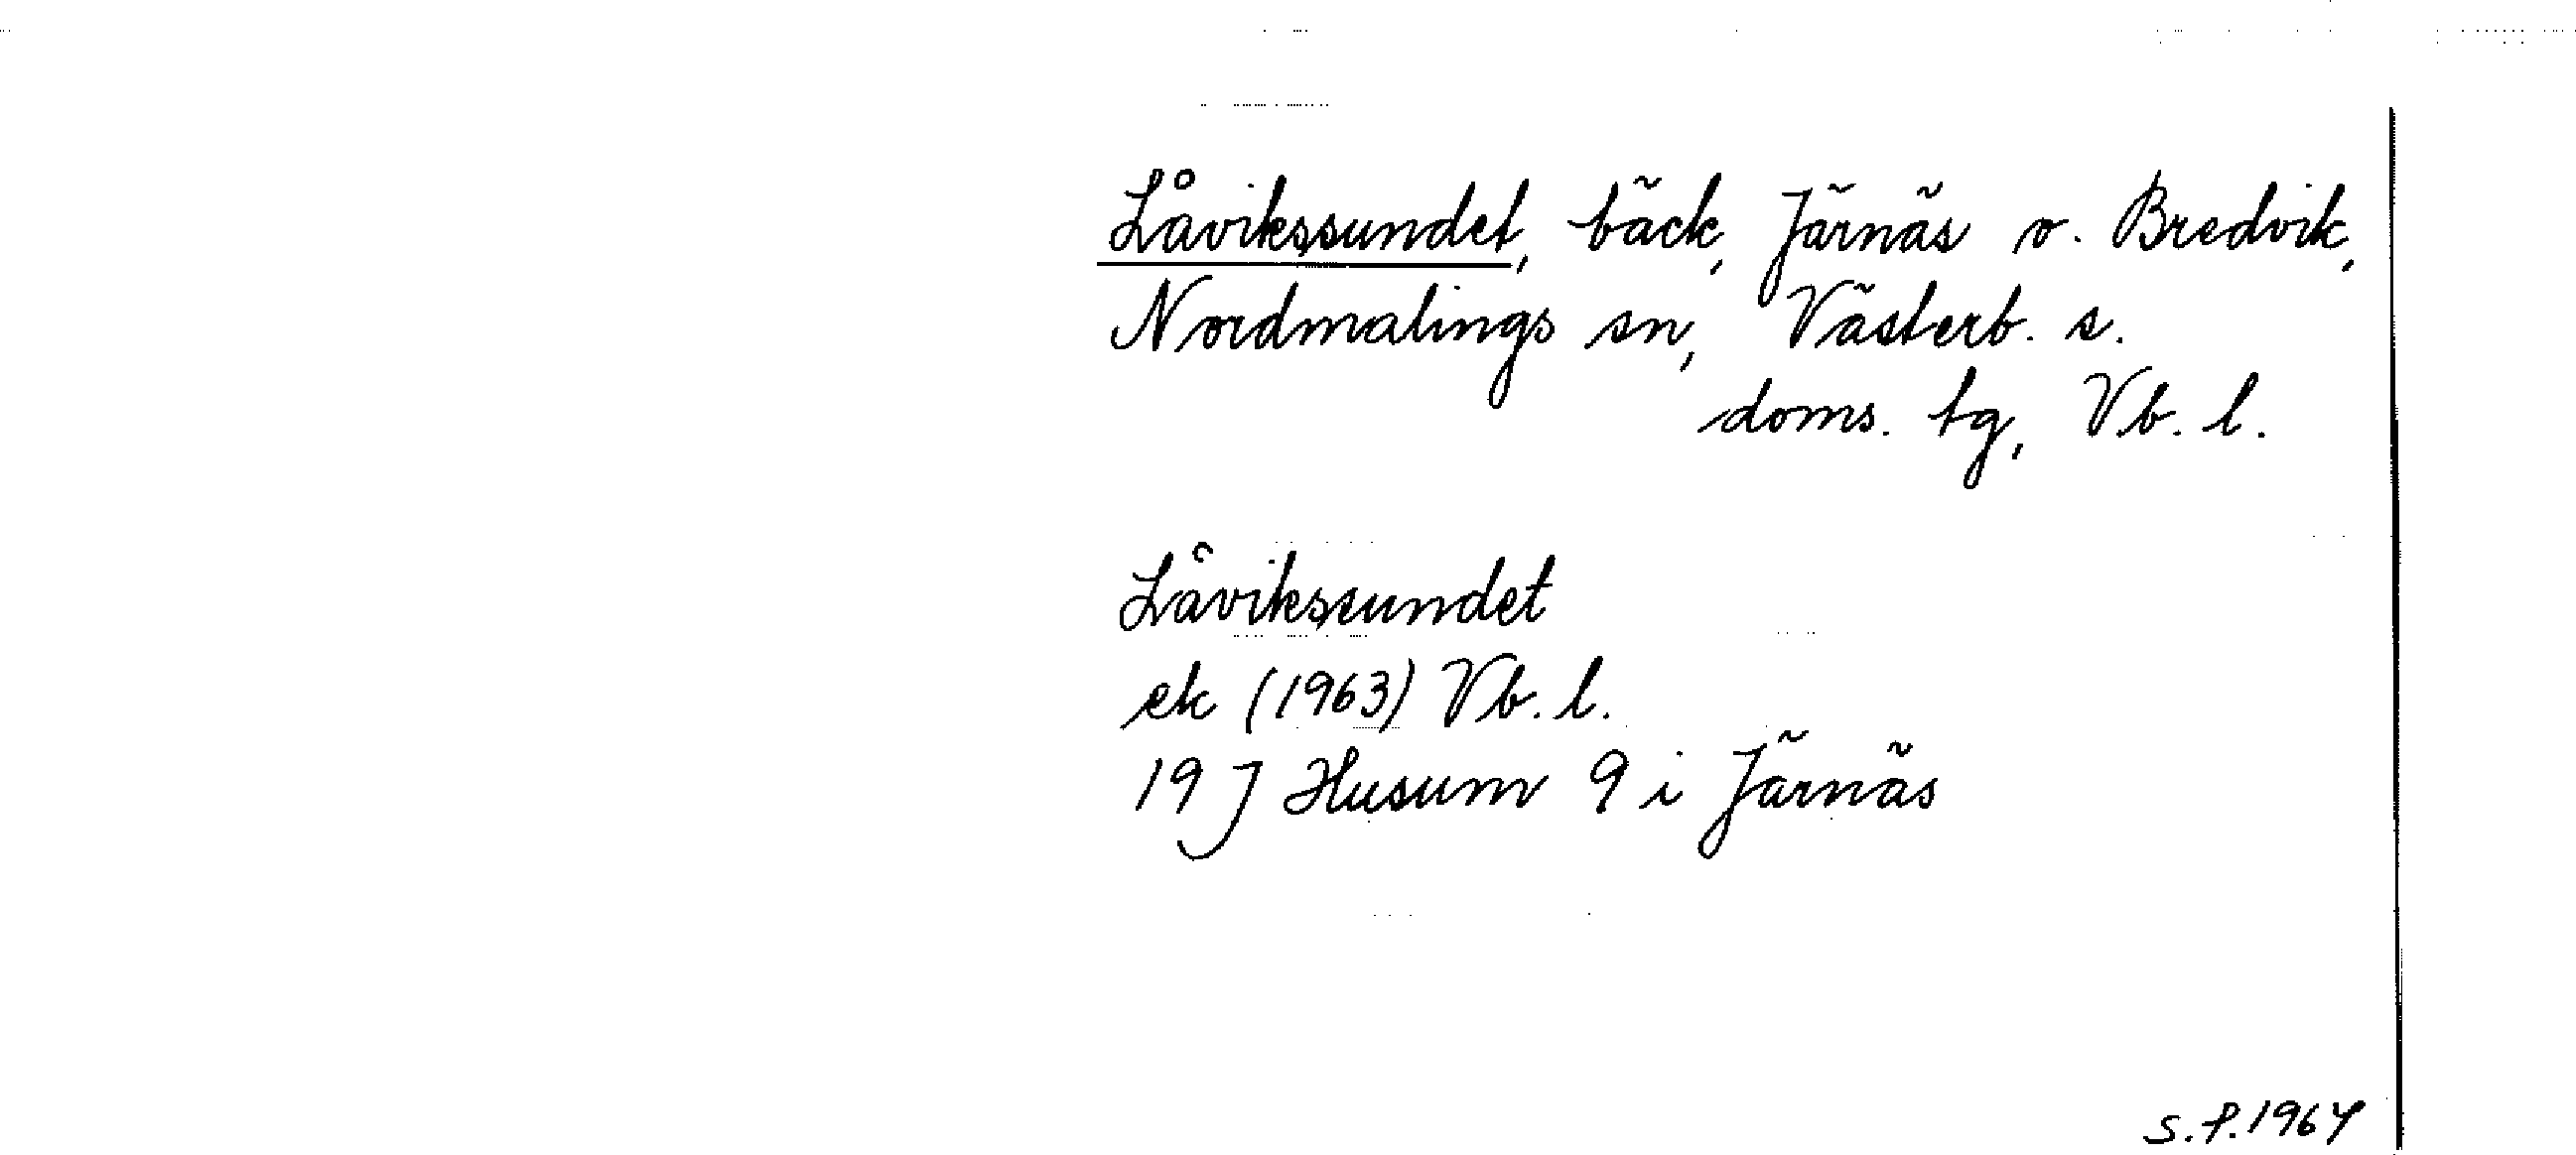 Låvikssundet, bäck, Järnäs o. Bredvik,
Nordmalings sn, Västerb. s.
doms. tg, Vb. l.
Låvikssundet
ek (1963) Vb. l.
19 J Husum 9 i Järnäs
S.P. 1964